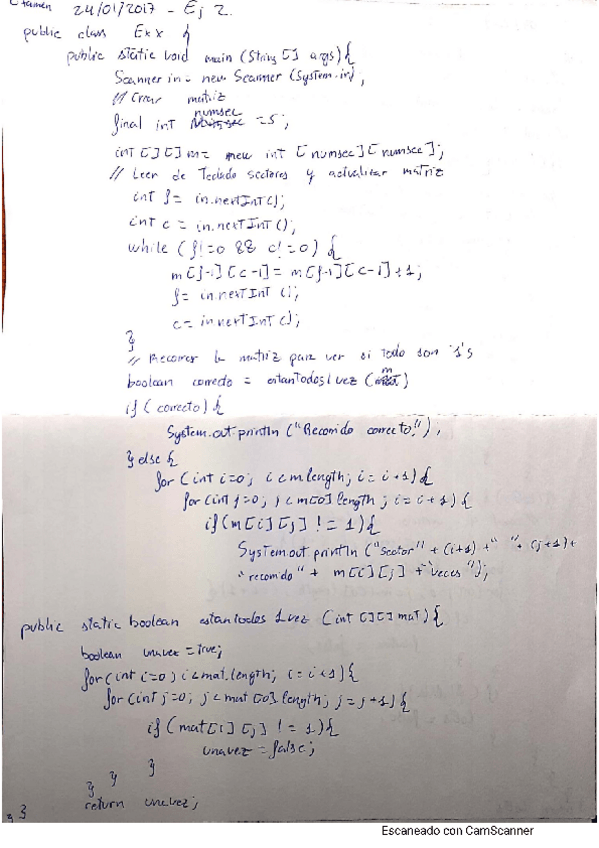 Examen 24/01/2017 - Ej 2.
public class Exx {
public static void main (String[] args){
Scanner in = new Scanner (System.in);
// Crear matriz
final int numsec = 5;
int[][] m = new int [numsec][numsec];
// Leer de Teclado sectores y actualizar matriz
int f = in.nextInt();
int c = in.nextInt();
while (f!=0 && c!=0) {
m[f-1][c-1] = m[f-1][c-1]+1;
f = in.nextInt();
c = in.nextInt();
}
// Recorrer la matriz para ver si Todo son 1's
boolean correcto = estanTodos1vez (m)
if (correcto) {
System.out.println ("Recorrido correcto!");
} else {
for (int i=0; i<m.length; i=i+1){
for (int j=0; j<m[0].length; i=i+1){
if (m[i][j] != 1){
System.out.println ("Sector" + (i+1) + " " + (j+1) +
"recorrido" + m[i][j] + "veces");
public static boolean estantodos1vez (int[][] mat) {
boolean unavez = true;
for (int i=0; i<mat.length; i=i+1){
for (int j=0; j<mat[0].length; j=j+1){
if (mat[i][j] != 1){
unavez = false;
}
}
}
return unavez;
} }
Escaneado con CamScanner